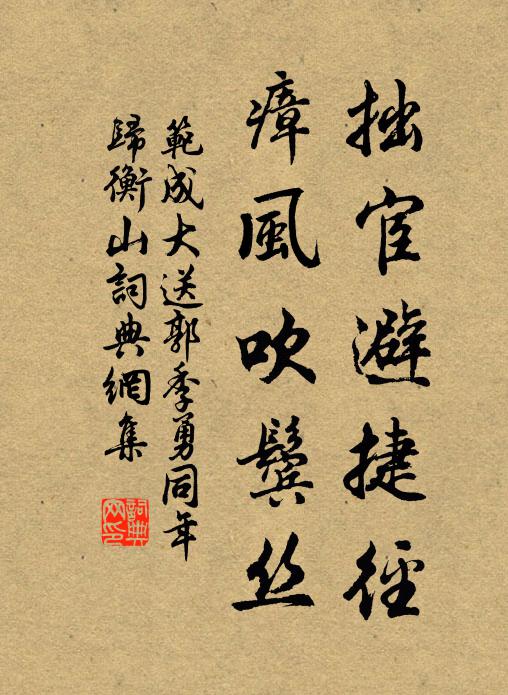 拙宦避捷徑
瘴風吹鬢丝
範成大送郭季勇同年
歸衡山詞典網集
詞典
网印